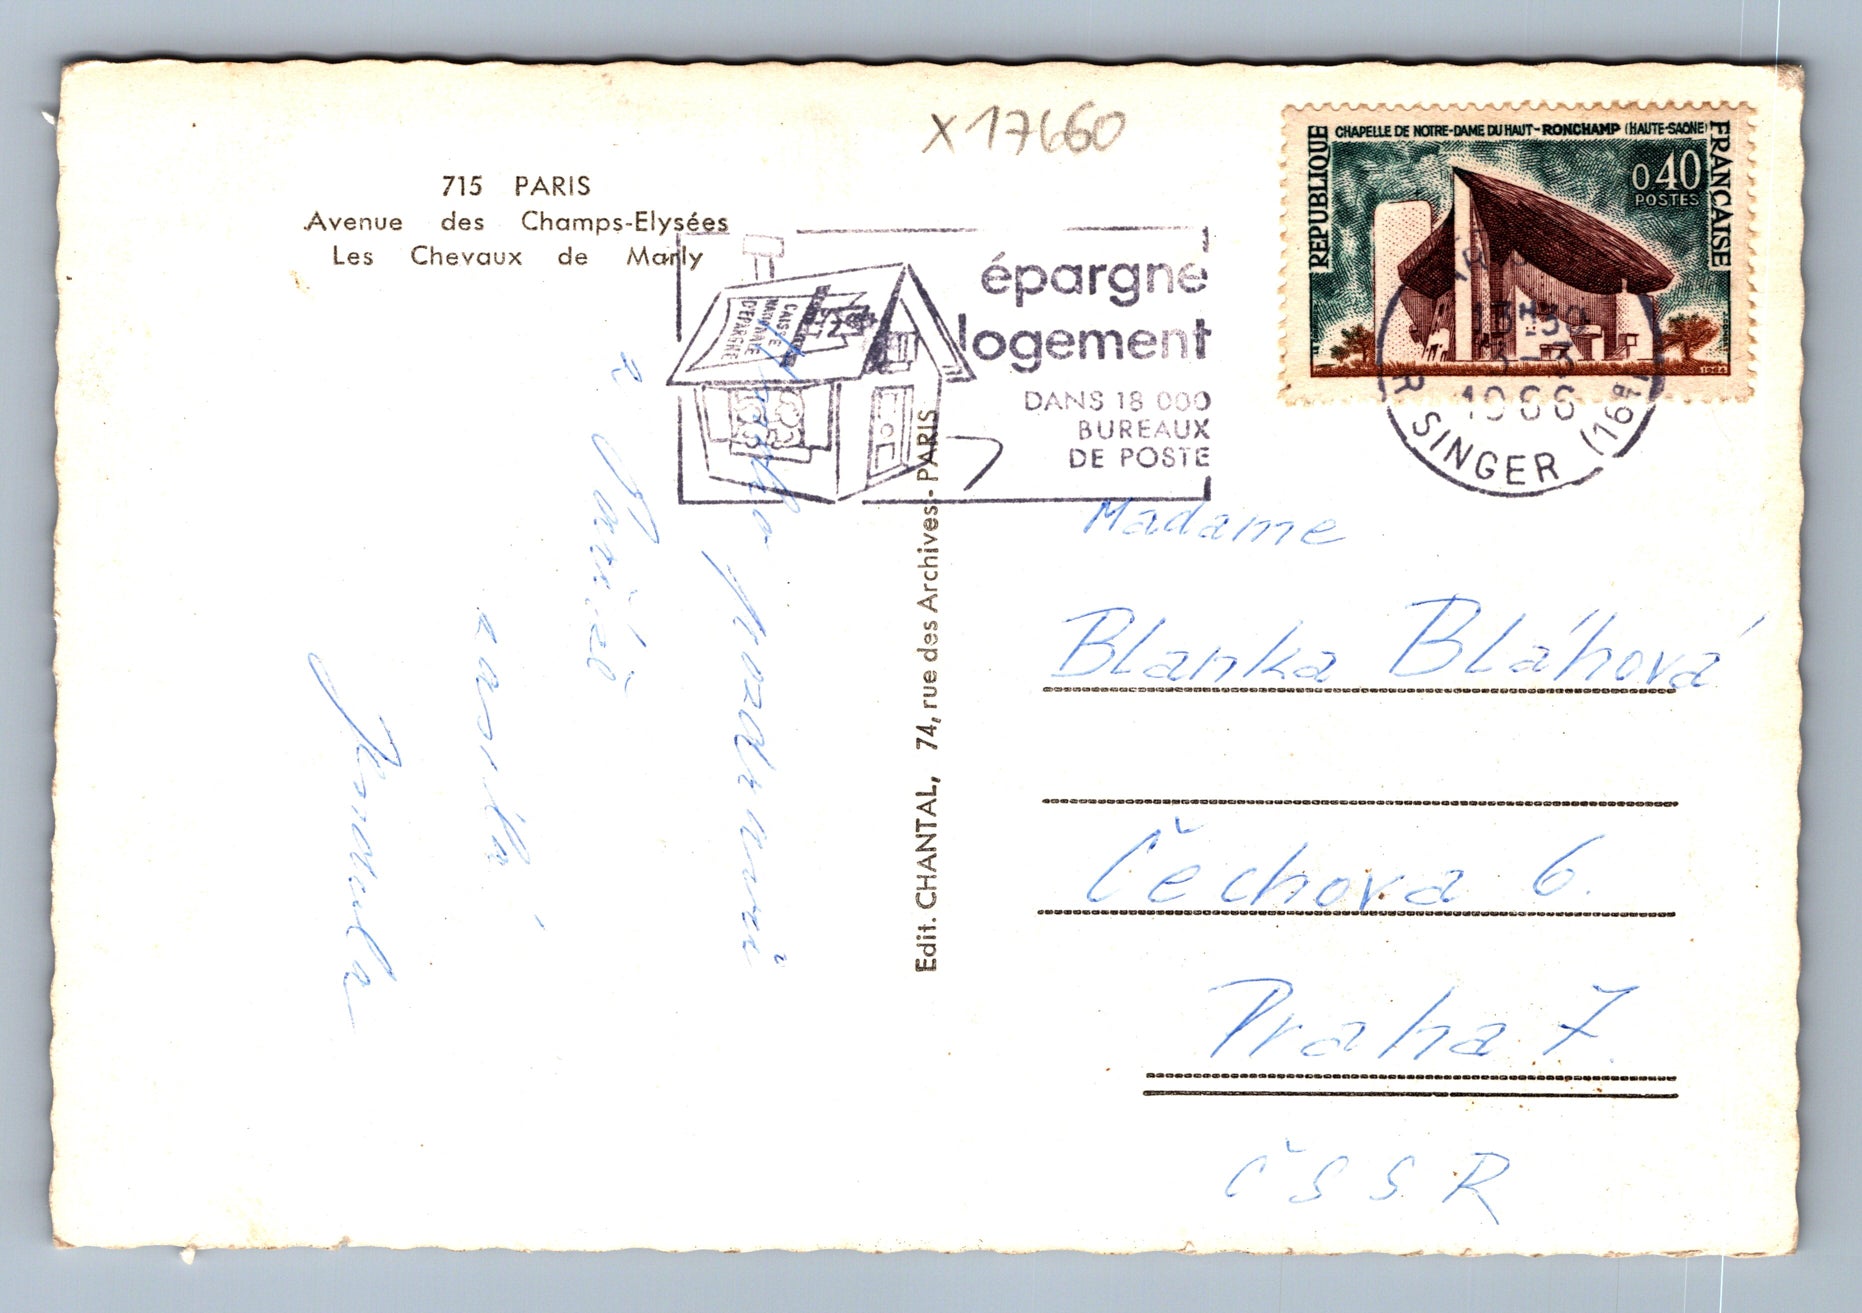 X 17660
715 PARIS
Avenue des Champs-Elysées
Les Chevaux de Marly
CAISSE
NATIONALE
D'EPARGNE
épargne
logement
DANS 18 000
BUREAUX
DE POSTE
CHAPELLE DE NOTRE-DAME DU HAUT-RONCHAMP (HAUTE-SAONE)
REPUBLIQUE
FRANCAISE
0,40
POSTES
1964
13H30
1966
R SINGER (16e)
Edit. CHANTAL, 74, rue des Archives - PARIS
Mnoho pozdravů
z Paříže
zasílá
Jarmila
Madame
Blanka Bláhová
Čechova 6.
Praha 7.
ČSSR